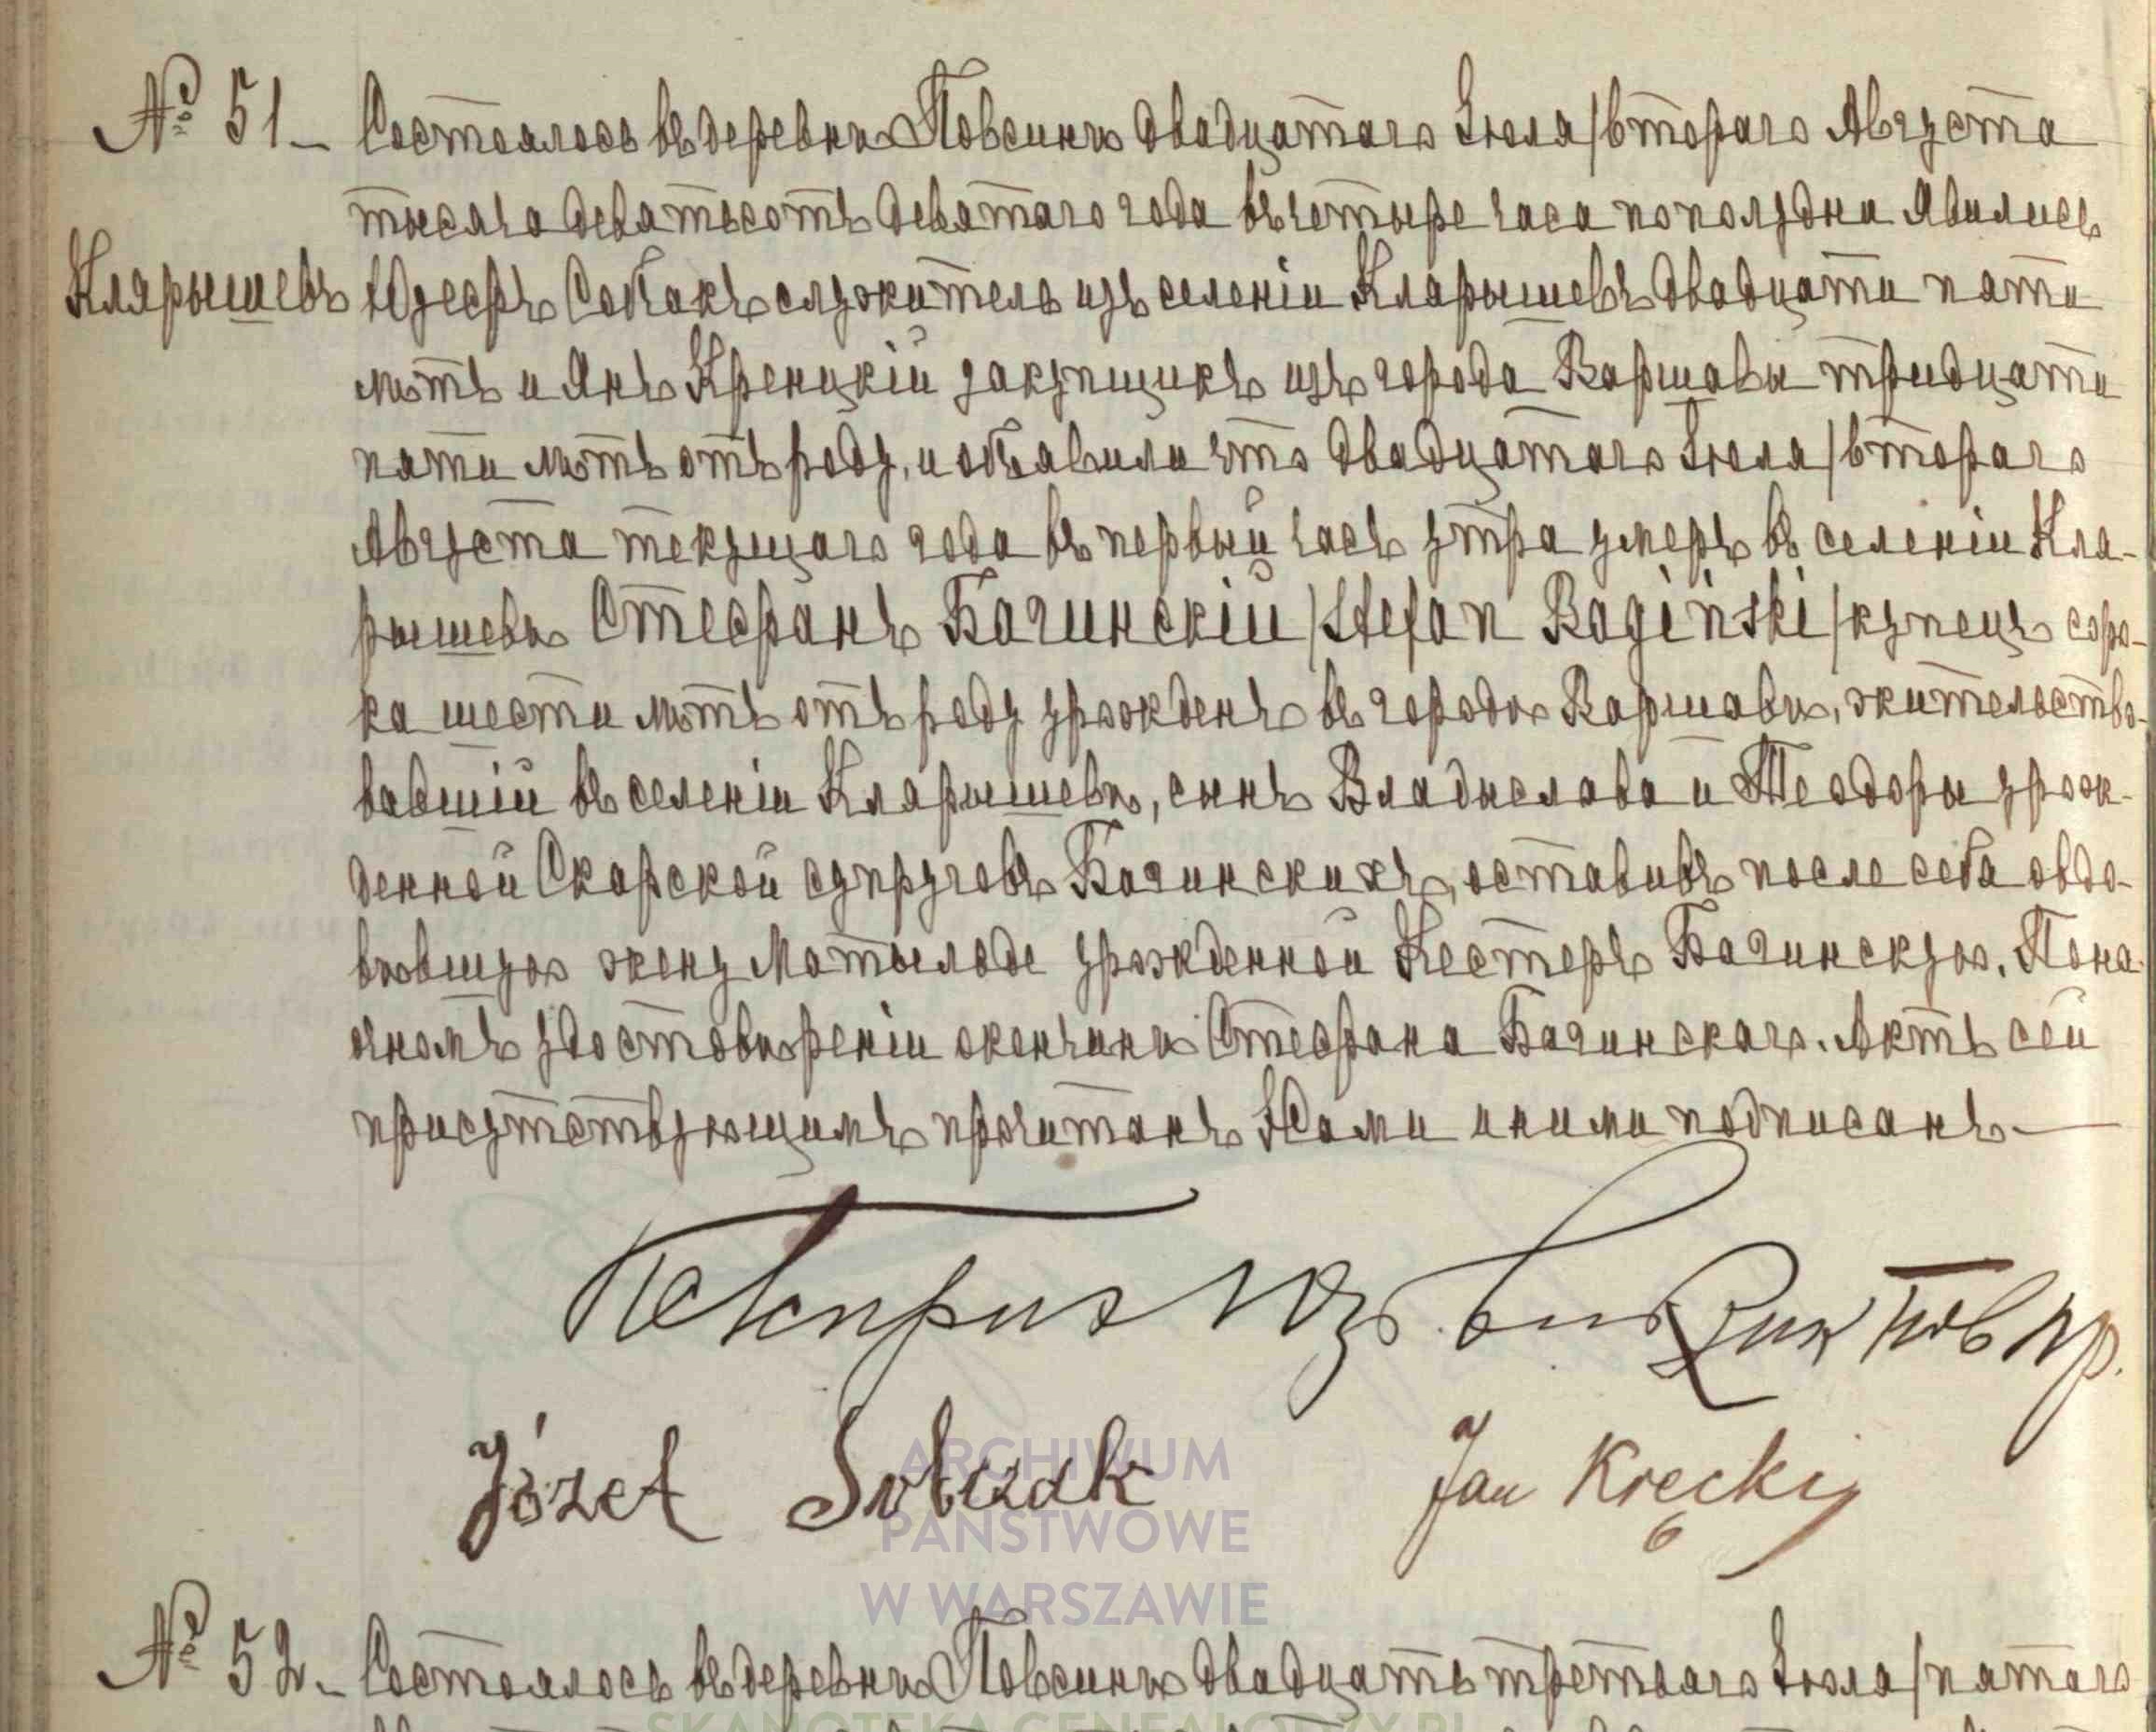 № 51_ Состоялось въ деревнѣ Повсинѣ двадцатаго Іюля/втораго Августа
тысяча девятьсотъ девятаго года въ четыре часа пополудни Явились
Клярышевъ Юзефъ Собчакъ служитель изъ селеніи Клярышевъ двадцати пяти
лѣтъ и Янъ Кренцкій закупщикъ изъ города Варшавы тридцати
пяти лѣтъ отъ роду, и объявили что двадцатаго Іюля/втораго
Августа текущаго года въ первый часъ утра умеръ въ селеніи Кля-
рышевѣ Стефанъ Багинскій/Stefan Bagiński/купецъ соро-
ка шести лѣтъ отъ роду урожденъ въ городѣ Варшавѣ, жительство-
вавшій въ селеніи Клярышевѣ, сынъ Владыслава и Теодоры урож-
денной Скарской супруговъ Багинскихъ, оставивъ после себя овдо-
вѣвшую жену Матыльде урожденной Кестеръ Багинскую. По на-
очномъ удостовѣреніи окончинѣ Стефана Багинскаго. Актъ сей
присутствующимъ прочитанъ Нами и ними подписанъ.—
Józef Sobczak
Jan Kręcki
ARCHIWUM
PAŃSTWOWE
W WARSZAWIE
№ 52_ Состоялось въ деревнѣ Повсинѣ двадцать третьаго Іюля/пятаго
SKANOTEKA.GENEALODZY.PL